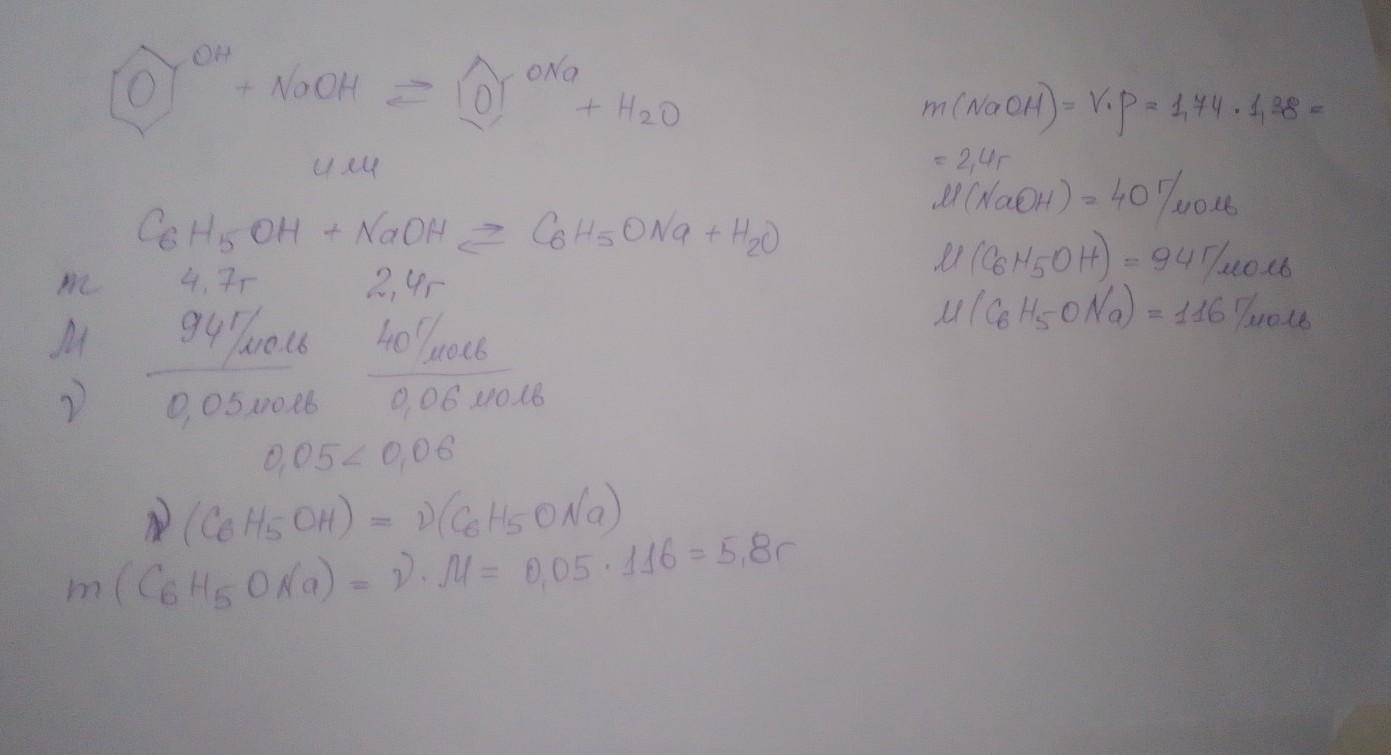 OH
+ NaOH ⇌ ONa + H2O
или
C6H5OH + NaOH ⇌ C6H5ONa + H2O
m 4,7г 2,4г
M 94г/моль 40г/моль
ν 0,05моль 0,06 моль
0,05 < 0,06
ν(C6H5OH) = ν(C6H5ONa)
m(C6H5ONa) = ν · M = 0,05 · 116 = 5,8г
m(NaOH) = V·ρ = 1,74 · 1,38 =
= 2,4г
M(NaOH) = 40 г/моль
M(C6H5OH) = 94 г/моль
M(C6H5ONa) = 116 г/моль